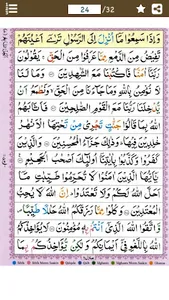 24 /32
وَاِذَا سَمِعُوۡا مَاۤ اُنۡزِلَ اِلَى الرَّسُوۡلِ تَرٰٓى اَعۡيُنَهُمۡ
تَفِيۡضُ مِنَ الدَّمۡعِ مِمَّا عَرَفُوۡا مِنَ الۡحَقِّ ۚ يَقُوۡلُوۡنَ
رَبَّنَاۤ اٰمَنَّا فَاكۡتُبۡنَا مَعَ الشّٰهِدِيۡنَ وَمَا لَنَا
لَا نُؤۡمِنُ بِاللّٰهِ وَمَا جَآءَنَا مِنَ الۡحَقِّ ۙ وَنَطۡمَعُ اَنۡ
يُّدۡخِلَنَا رَبُّنَا مَعَ الۡقَوۡمِ الصّٰلِحِيۡنَ فَاَثَابَهُمُ
اللّٰهُ بِمَا قَالُوۡا جَنّٰتٍ تَجۡرِىۡ مِنۡ تَحۡتِهَا الۡاَنۡهٰرُ
خٰلِدِيۡنَ فِيۡهَا ؕ وَذٰلِكَ جَزَآءُ الۡمُحۡسِنِيۡنَ وَالَّذِيۡنَ
كَفَرُوۡا وَكَذَّبُوۡا بِاٰيٰتِنَاۤ اُولٰٓئِكَ اَصۡحٰبُ الۡجَحِيۡمِ
يٰۤاَيُّهَا الَّذِيۡنَ اٰمَنُوۡا لَا تُحَرِّمُوۡا طَيِّبٰتِ مَاۤ
اَحَلَّ اللّٰهُ لَكُمۡ وَلَا تَعۡتَدُوۡا ؕ اِنَّ اللّٰهَ لَا يُحِبُّ
الۡمُعۡتَدِيۡنَ وَكُلُوۡا مِمَّا رَزَقَكُمُ اللّٰهُ حَلٰلًا طَيِّبًا
وَّاتَّقُوا اللّٰهَ الَّذِىۡۤ اَنۡتُمۡ بِهٖ مُؤۡمِنُوۡنَ لَا يُؤَاخِذُكُمُ
اللّٰهُ بِاللَّغۡوِ فِىۡۤ اَيۡمَانِكُمۡ وَلٰكِنۡ يُّؤَاخِذُكُمۡ بِمَا